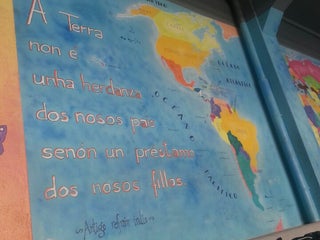 A Terra
non é
unha herdanza
dos nosos pais
senon un prestamo
dos nosos fillos.
OCEANO
ATLANTICO
OCEANO
PACIFICO